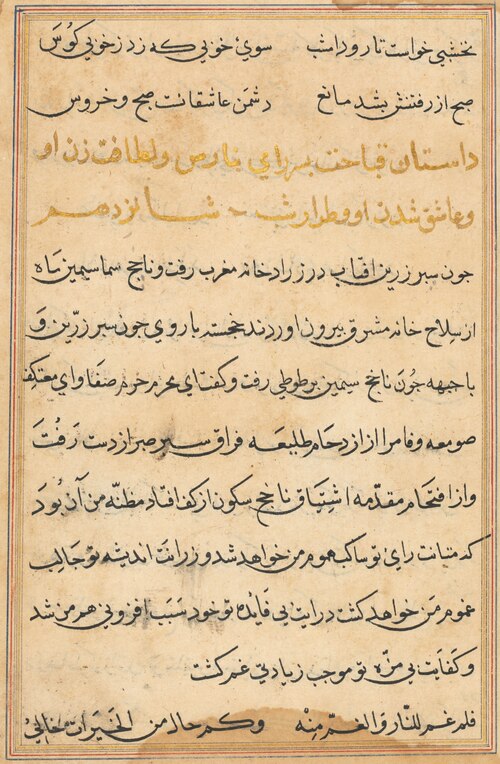 نخشبی خواست تا رود امشب سوی خوبی که زد ز خوبی کوس
صبح از رفتنش بشد مانع دشمن عاشقانت صبح و خروس
داستان قباحت برزای فارس و لطافت زن او
و عاشق شدن او و طرار شب شانزدهم
جون سبر زرین افتاب در زرادخانه مغرب رفت و ناجخ سما سیمین ماه
از سلاح خانه مشرق بیرون اوردند خجسته با روی جون سبر زرین و
با جبهه جون ناجخ سیمین بر طوطی رفت و کفت ای محرم حرم صفا و ای معتکف
صومعه وفا مرا از ازدحام طلیعه فراق سبر صبر از دست رفت
و از اقتحام مقدمه اشتیاق ناجخ سکون از کف افتاد مظنه من آن بود
که متانت رای تو ساکب هموم من خواهد شد و رزانت اندیشه تو جالب
غموم من خواهد کشت درایت بی فائده تو خود سبب افزونی هم من شد
و کفایت بی مزه تو موجب زیادتی غم کشت
فلم غم للنار و الغم منه وکم حال من الخیرات خالی